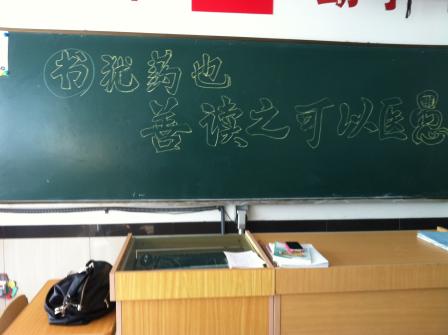 书犹药也
善读之可以医愚